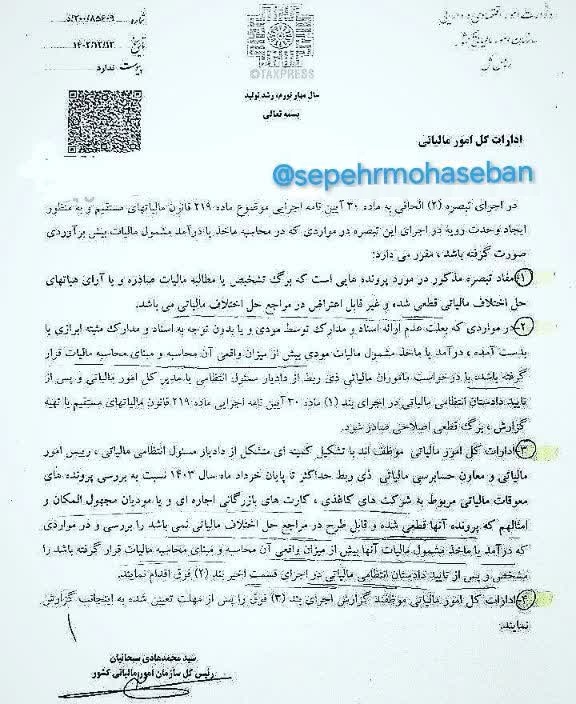 وزارت امور اقتصادی و دارایی
سازمان امور مالیاتی کشور
شماره ۵/۲۰۰/۸۵۶۰۹
تاریخ ۱۴۰۲/۱۲/۱۲
پیوست ندارد
©TAXPRESS
سال مهار تورم، رشد تولید
بسمه تعالی
ادارات کل امور مالیاتی
@sepehrmohaseban
در اجرای تبصره (۲) الحاقی به ماده ۳۰ آیین نامه اجرایی موضوع ماده ۲۱۹ قانون مالیاتهای مستقیم و به منظور
ایجاد وحدت رویه در اجرای این تبصره در مواردی که در محاسبه ماخذ یا درآمد مشمول مالیات بیش برآوردی
صورت گرفته باشد، مقرر می دارد:
۱-مفاد تبصره مذکور در مورد پرونده هایی است که برگ تشخیص یا مطالبه مالیات صادره و یا آرای هیاتهای
حل اختلاف مالیاتی قطعی شده و غیر قابل اعتراض در مراجع حل اختلاف مالیاتی می باشد.
۲-در مواردی که بعلت عدم ارائه اسناد و مدارک توسط مودی و یا بدون توجه به اسناد و مدارک مثبته ابرازی یا
بدست آمده، درآمد یا ماخذ مشمول مالیات مودی بیش از میزان واقعی آن محاسبه و مبنای محاسبه مالیات قرار
گرفته باشد، با درخواست ماموران مالیاتی ذی ربط از دادیار مسئول انتظامی یا مدیر کل امور مالیاتی و پس از
تایید دادستان انتظامی مالیاتی در اجرای بند (۱) ماده ۳۰ آیین نامه اجرایی ماده ۲۱۹ قانون مالیاتهای مستقیم با تهیه
گزارش، برگ قطعی اصلاحی صادر شود.
۳-ادارات کل امور مالیاتی موظف اند با تشکیل کمیته ای متشکل از دادیار مسئول انتظامی مالیاتی، رییس امور
مالیاتی و معاون حسابرسی مالیاتی ذی ربط حداکثر تا پایان خرداد ماه سال ۱۴۰۳ نسبت به بررسی پرونده های
معوقات مالیاتی مربوط به شرکت های کاغذی، کارت های بازرگانی اجاره ای و یا مودیان مجهول المکان و
امثالهم که پرونده آنها قطعی شده و قابل طرح در مراجع حل اختلاف مالیاتی نمی باشد را بررسی و در مواردی
که درآمد یا ماخذ مشمول مالیات آنها بیش از میزان واقعی آن محاسبه و مبنای محاسبه مالیات قرار گرفته باشد را
مشخص و پس از تایید دادستان انتظامی مالیاتی در اجرای قسمت اخیر بند (۲) فوق اقدام نمایند.
۴-ادارات کل امور مالیاتی موظفند گزارش اجرای بند (۳) فوق را پس از مهلت تعیین شده به اینجانب گزارش
نمایند.
سید محمدهادی سبحانیان
رئیس کل سازمان امور مالیاتی کشور